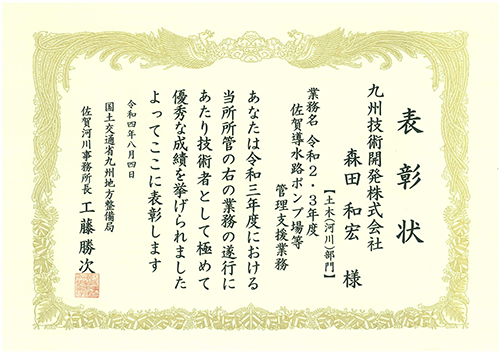 表彰状
九州技術開発株式会社
森田和宏様
【土木(河川)部門】
業務名 令和2・3年度
佐賀導水路ポンプ場等
管理支援業務
あなたは令和三年度における
当所所管の右の業務の遂行に
あたり技術者として極めて
優秀な成績を挙げられました
よってここに表彰します
令和四年八月四日
国土交通省九州地方整備局
佐賀河川事務所長 工藤勝次